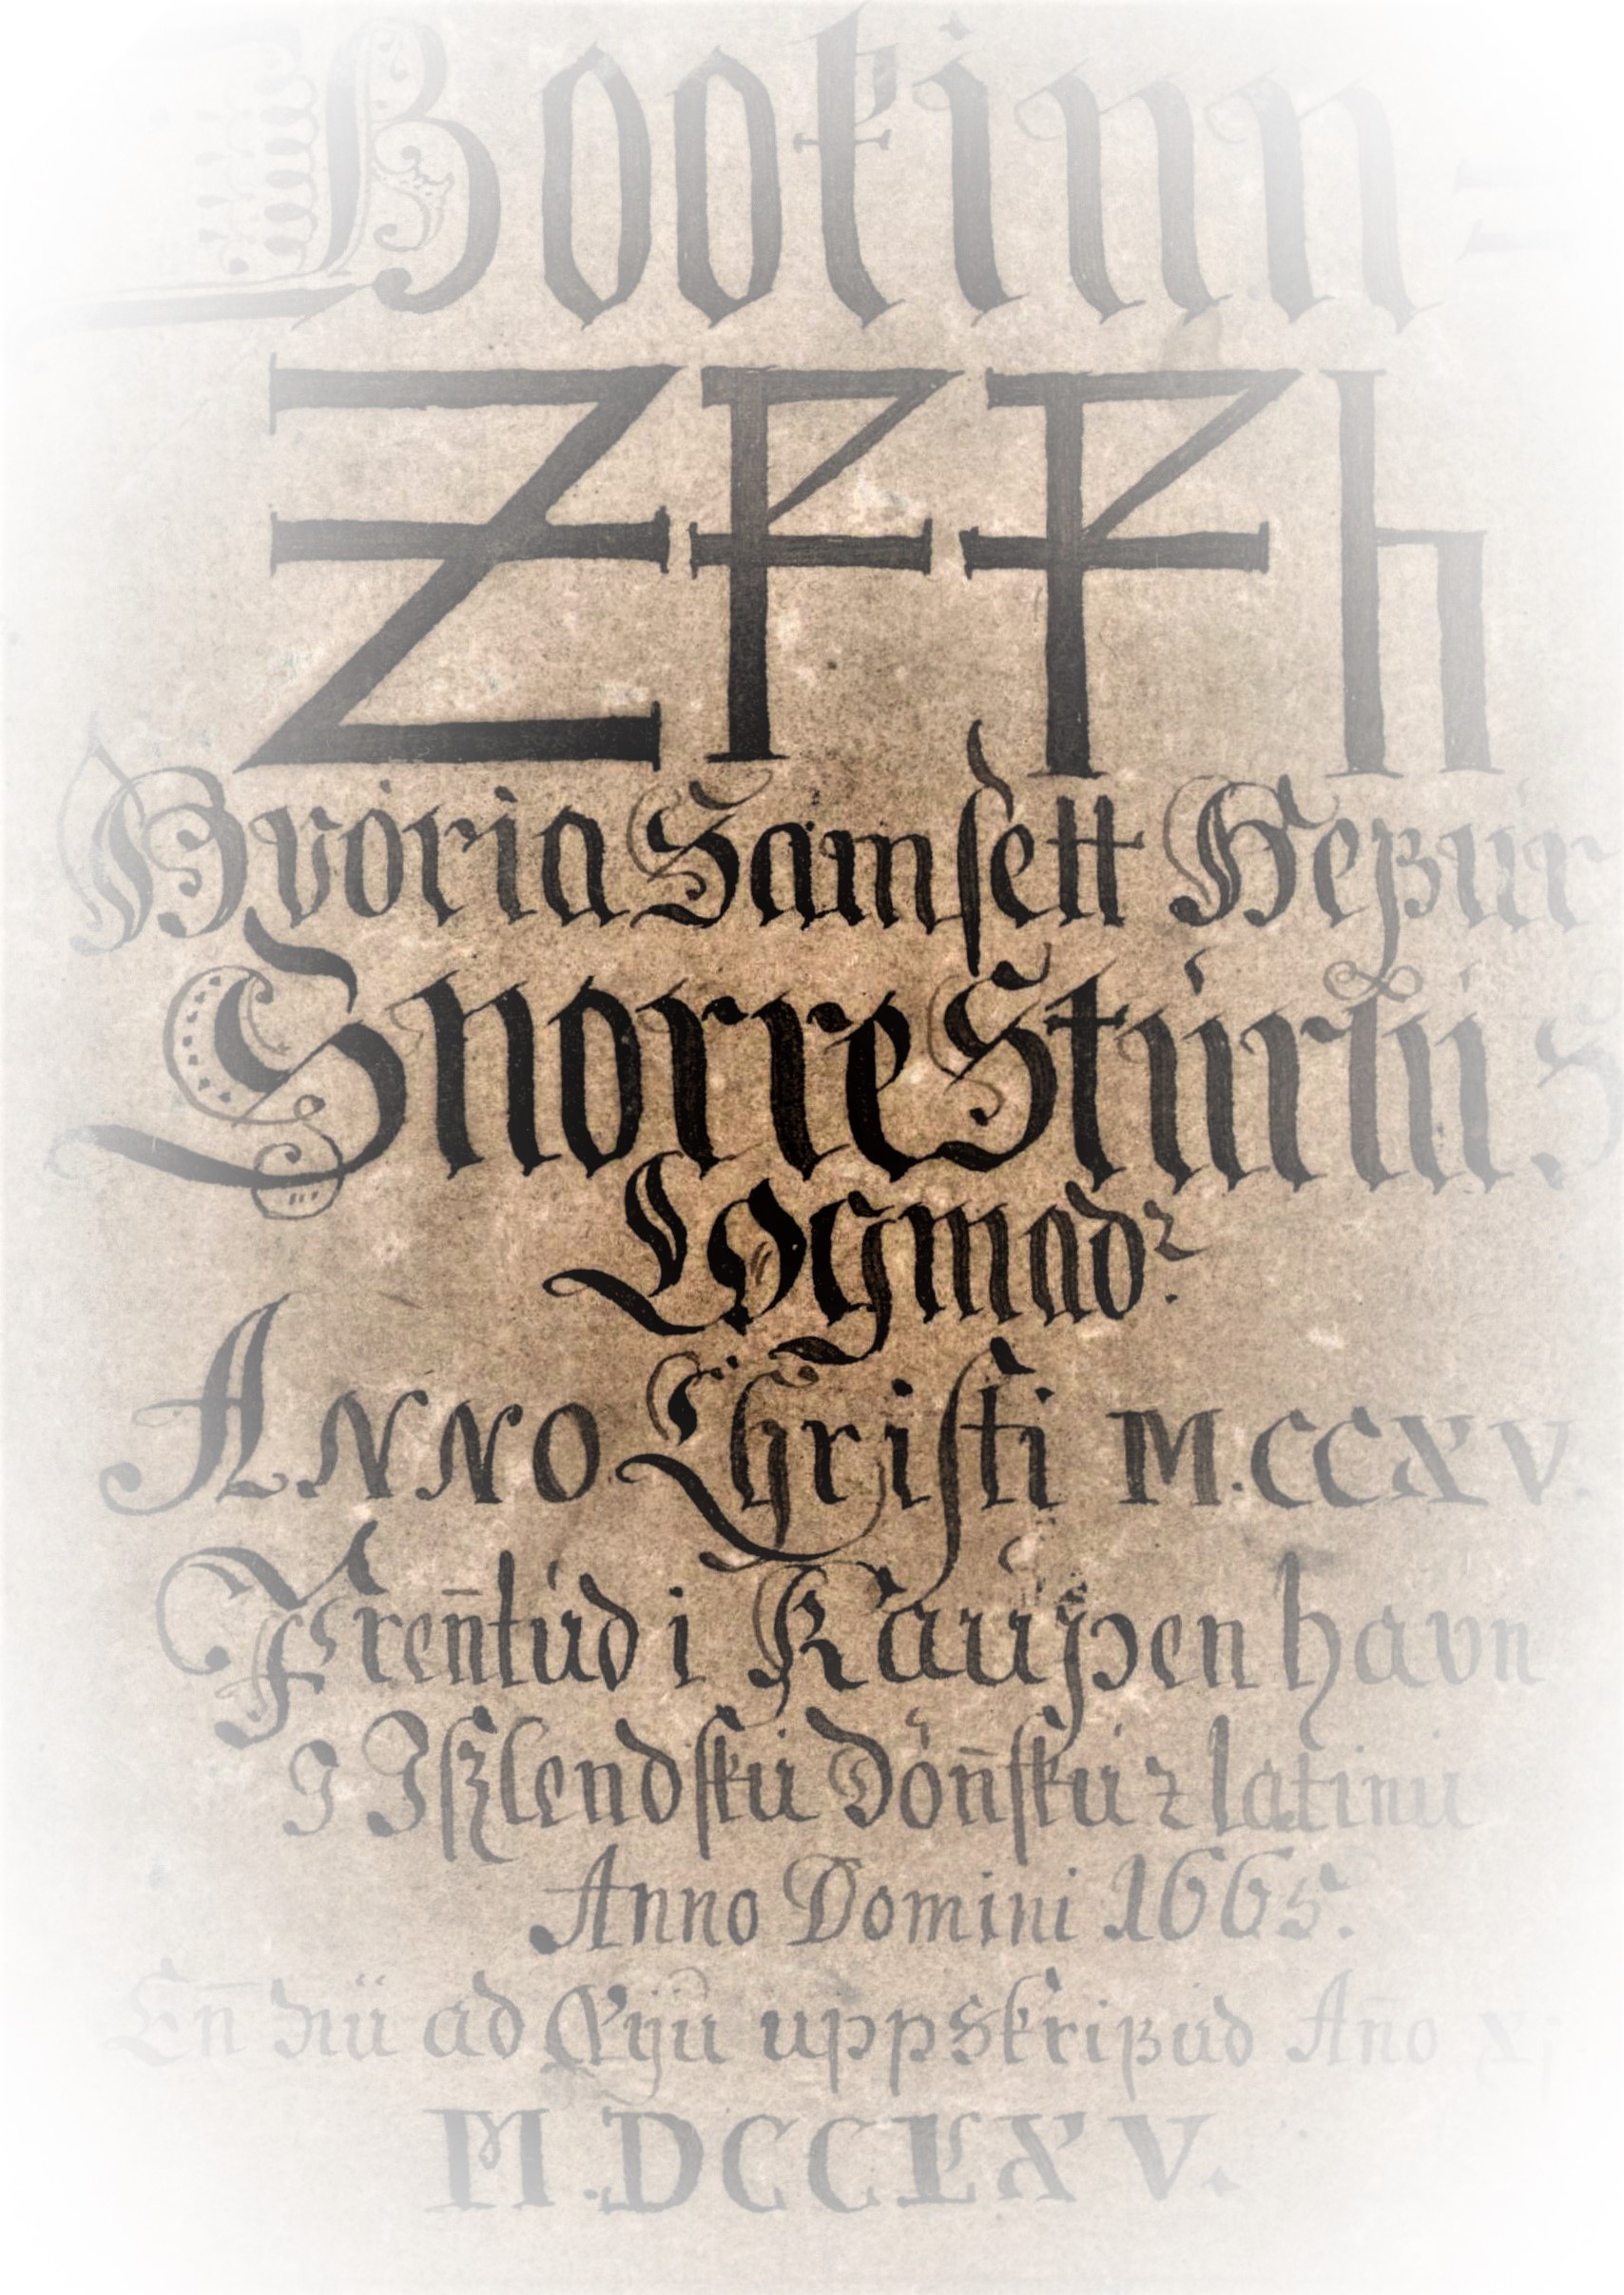 Bookinn=
Edda
Hvöria Samsett Hefur
Snorre Sturlu S
Logmadr.
Anno Christi M.CCXV.
Pren̄tud i Kaupenhavn
I Iszlendsku Dön̄sku ꝛ latinu
Anno Domini 1665.
En̄ nu ad Nyu uppskrifud An̄o
M.DCCLXV.